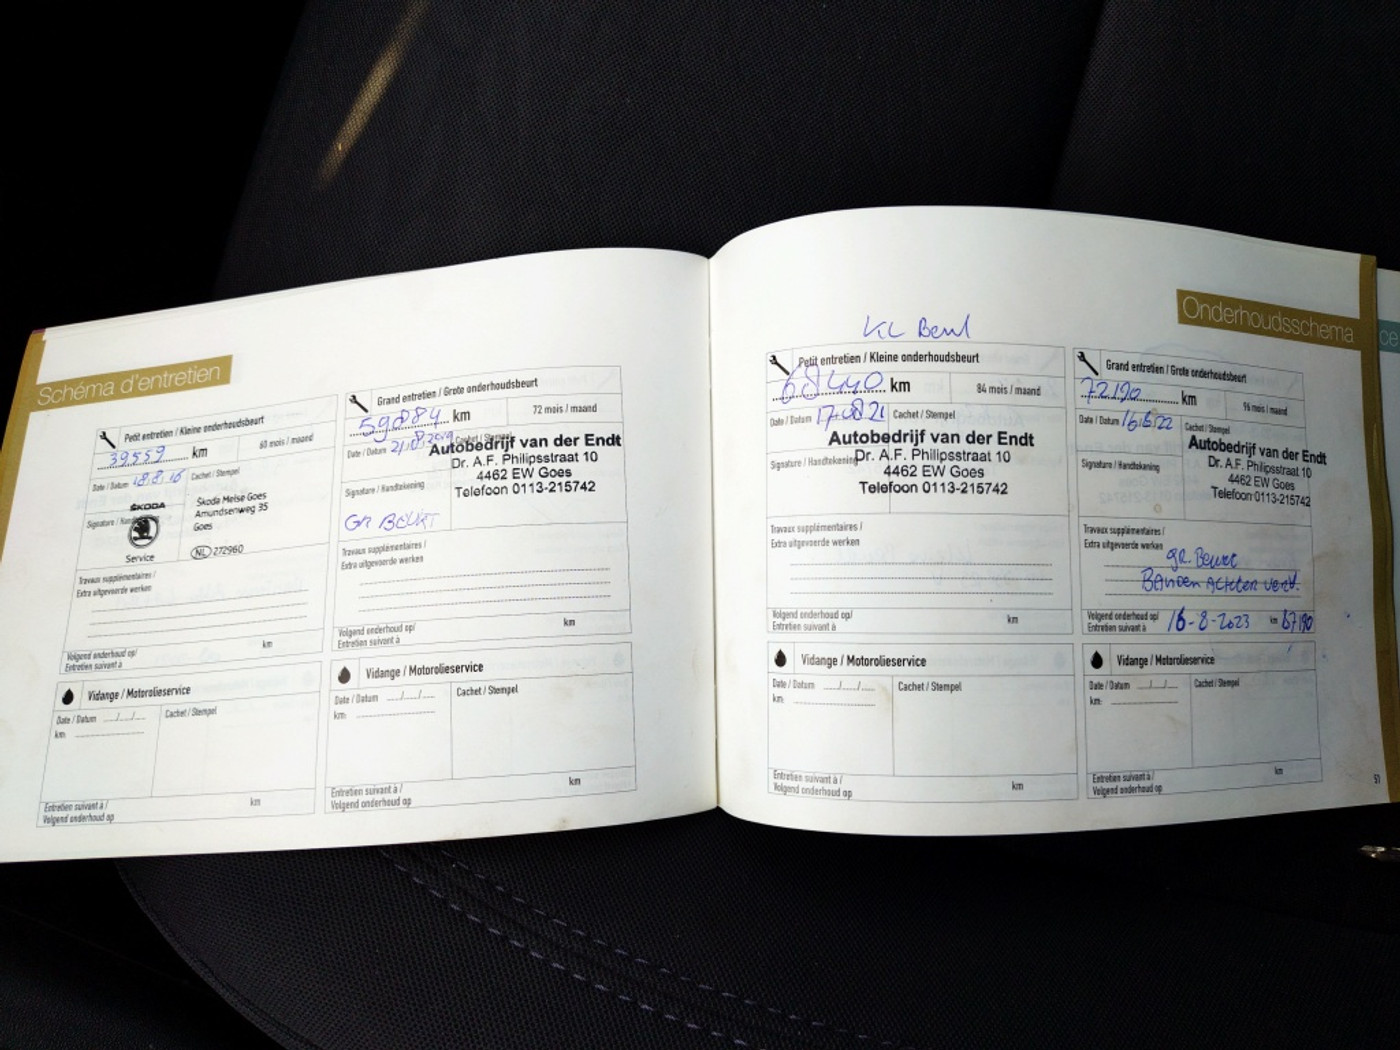 Schéma d'entretien
Petit entretien / Kleine onderhoudsbeurt
39559 km
60 mois / maand
Date / Datum 18.8.16
Cachet / Stempel
Signature /
ŠKODA
Service
Škoda Melse Goes
Amundsenweg 35
Goes
NL 272960
Travaux supplémentaires /
Extra uitgevoerde werken
Volgend onderhoud op/
Entretien suivant à
km
Vidange / Motorolieservice
Date / Datum .../.../...
km:
Cachet / Stempel
Entretien suivant à /
Volgend onderhoud op
km
Grand entretien / Grote onderhoudsbeurt
59884 km
72 mois / maand
Date / Datum
Cachet / Stempel
Autobedrijf van der Endt
Dr. A.F. Philipsstraat 10
4462 EW Goes
Telefoon 0113-215742
Signature / Handtekening
GR BEURT
Travaux supplémentaires /
Extra uitgevoerde werken
Volgend onderhoud op/
Entretien suivant à
km
Vidange / Motorolieservice
Date / Datum .../.../...
km:
Cachet / Stempel
Entretien suivant à /
Volgend onderhoud op
km
Onderhoudsschema
KL Beurt
Petit entretien / Kleine onderhoudsbeurt
68440 km
84 mois / maand
Date / Datum
Cachet / Stempel
Autobedrijf van der Endt
Dr. A.F. Philipsstraat 10
4462 EW Goes
Telefoon 0113-215742
Signature / Handtekening
Travaux supplémentaires /
Extra uitgevoerde werken
Volgend onderhoud op/
Entretien suivant à
km
Vidange / Motorolieservice
Date / Datum .../.../...
km:
Cachet / Stempel
Entretien suivant à /
Volgend onderhoud op
km
Grand entretien / Grote onderhoudsbeurt
72190 km
96 mois / maand
Date / Datum
Cachet / Stempel
Autobedrijf van der Endt
Dr. A.F. Philipsstraat 10
4462 EW Goes
Telefoon 0113-215742
Signature / Handtekening
Travaux supplémentaires /
Extra uitgevoerde werken
gr. Beurt
Banden Achter verv.
Volgend onderhoud op/
Entretien suivant à
16-8-2023 km 87190
Vidange / Motorolieservice
Date / Datum .../.../...
km:
Cachet / Stempel
Entretien suivant à /
Volgend onderhoud op
km
51
ce